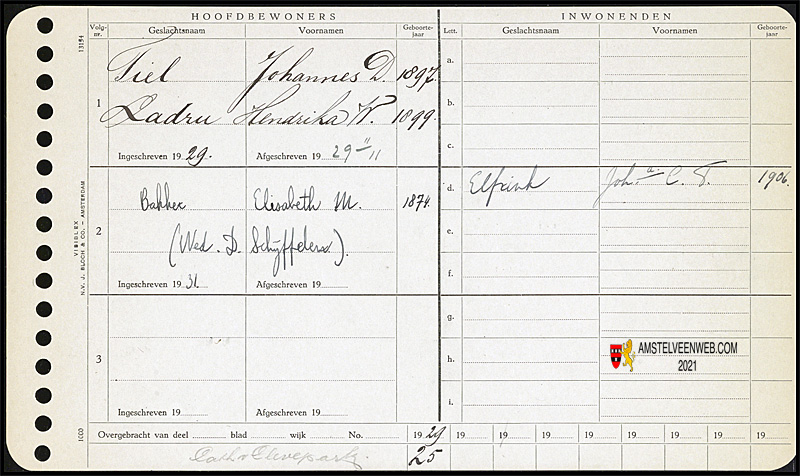 HOOFDBEWONERS
INWONENDEN
Volg-nr. Geslachtsnaam Voornamen Geboorte-jaar Lett. Geslachtsnaam Voornamen Geboorte-jaar
13154
1
Tiel Johannes D. 1897.
Ladru Hendrika W. 1899.
Ingeschreven 1929. Afgeschreven 29-11
a.
b.
c.
2
Bakker Elisabeth M. 1874.
(Wed. D. Schijffelers).
Ingeschreven 1931. Afgeschreven 19
d. Elfrink Joh.a C. T. 1906.
e.
f.
3
Ingeschreven 19 Afgeschreven 19
g.
h.
i.
AMSTELVEENWEB.COM
2021
VISIBLEX
N.V. J. BLOCH & CO. - AMSTERDAM
1CCO
Overgebracht van deel blad wijk No. 1929 19 19 19 19 19 19 19 19 19
25